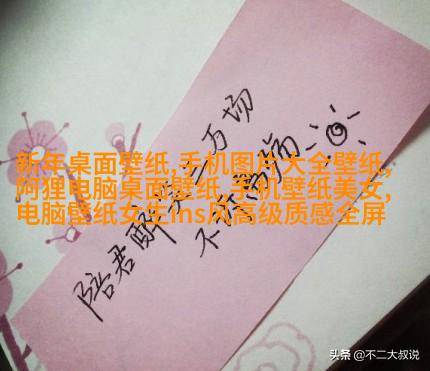 新年桌面壁纸,手机图片大全壁纸,
阿狸电脑桌面壁纸,手机壁纸美女,
电脑壁纸女生ins风高级质感全屏
陪君醉笑三万场
不诉离
头条 @不二大叔说